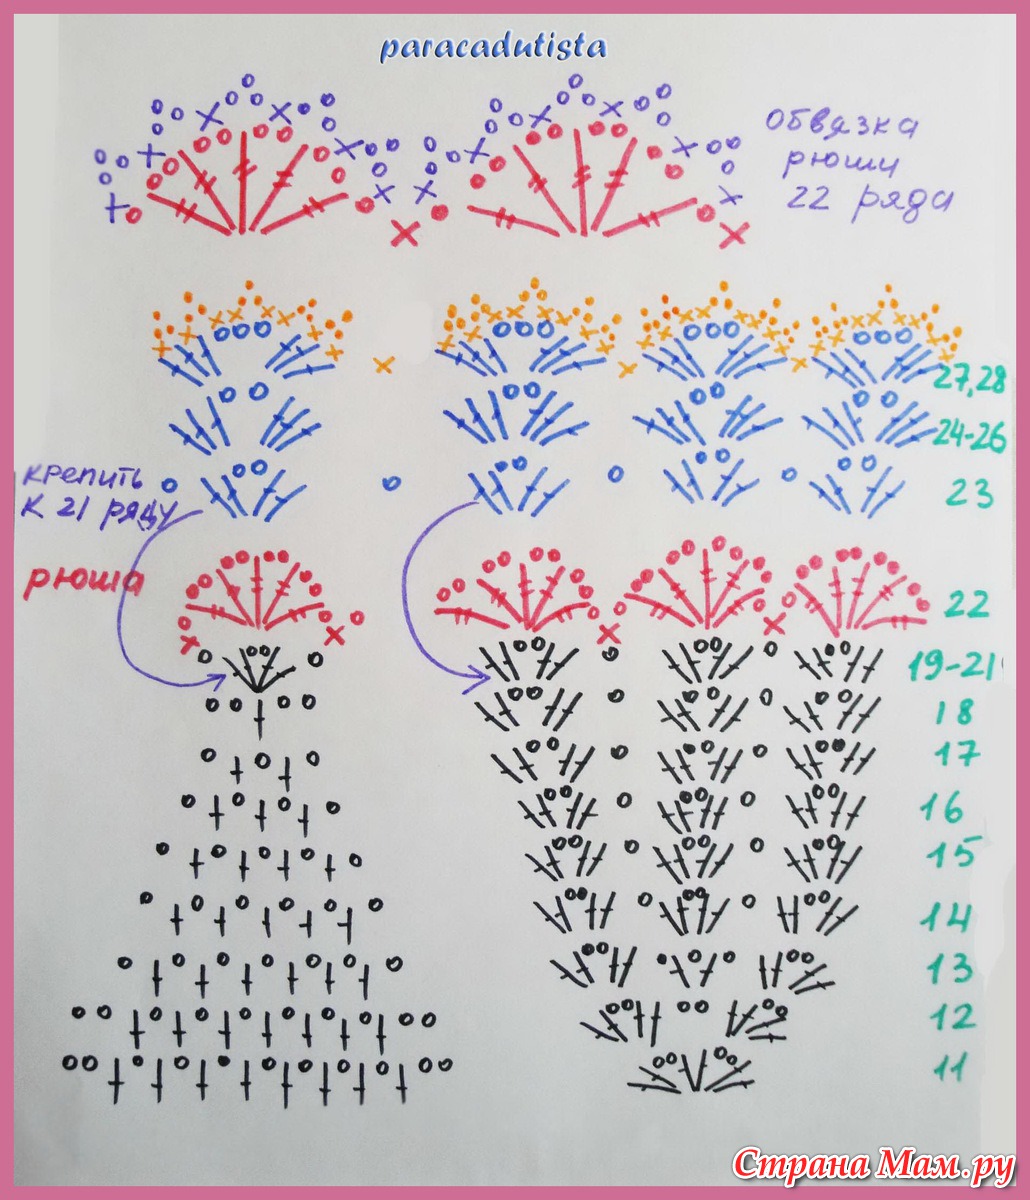 paracadutista
обвязка
рюши
22 ряда
27,28
24-26
крепить
к 21 ряду
23
рюша
22
19-21
18
17
16
15
14
13
12
11
Страна Мам.ру